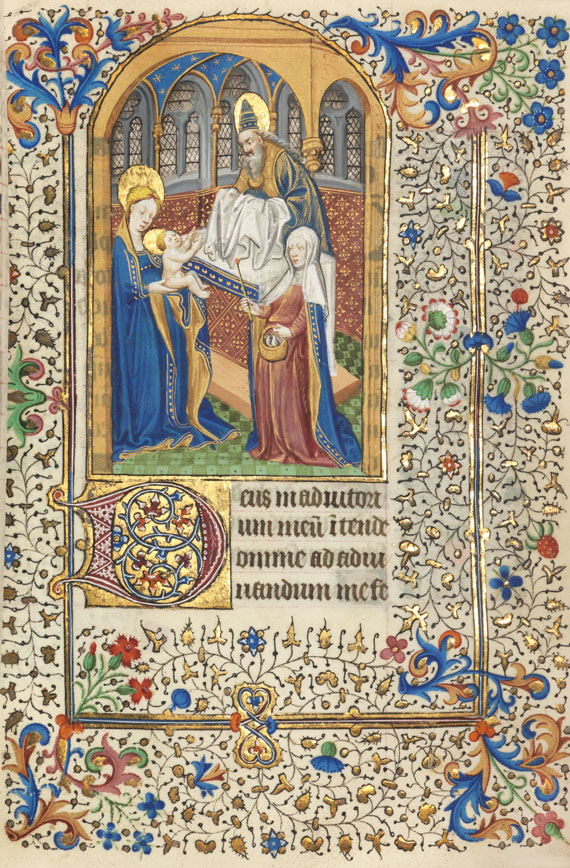 Deus in adiutori
um meū ītende
domine ad adiu
uandum me fe